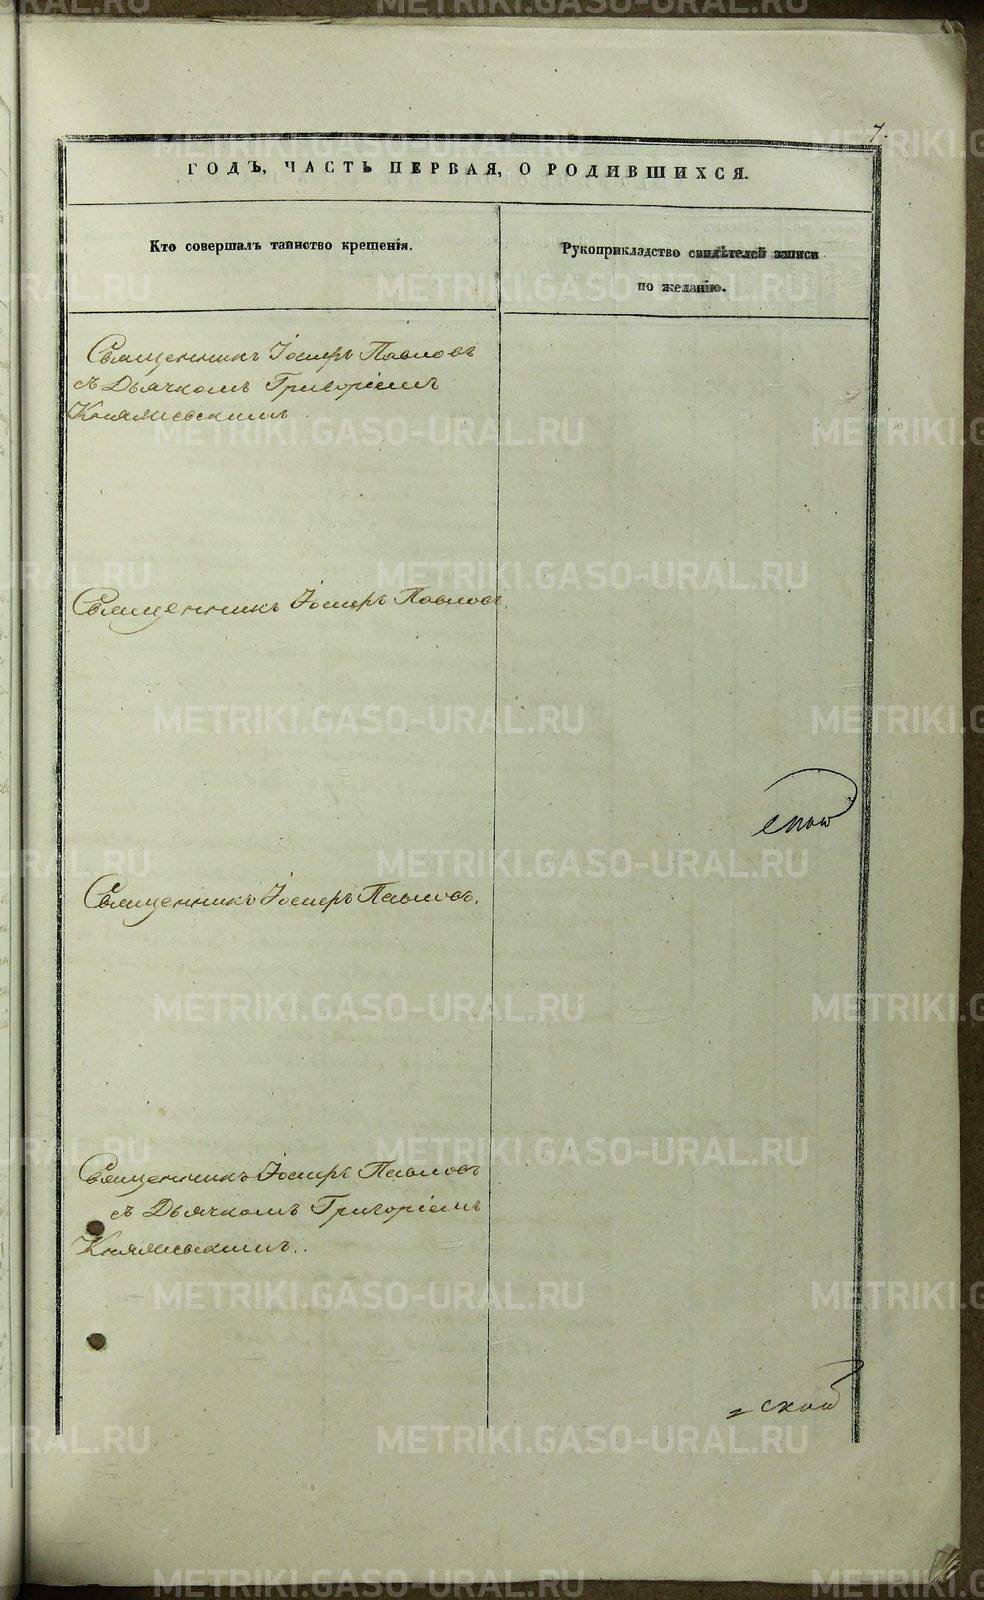 7.
ГОДЪ, ЧАСТЬ ПЕРВАЯ, О РОДИВШИХСЯ.
Кто совершалъ таинство крещенія.
Рукоприкладство свидѣтелей записи
по желанію.
Священникъ Іосифъ Павловъ
съ Дьячкомъ Григоріемъ
Княжевскимъ
Священникъ Іосифъ Павловъ.
Священникъ Іосифъ Павловъ.
Священникъ Іосифъ Павловъ
съ Дьячкомъ Григоріемъ
Княжевскимъ.
METRIKI.GASO-URAL.RU